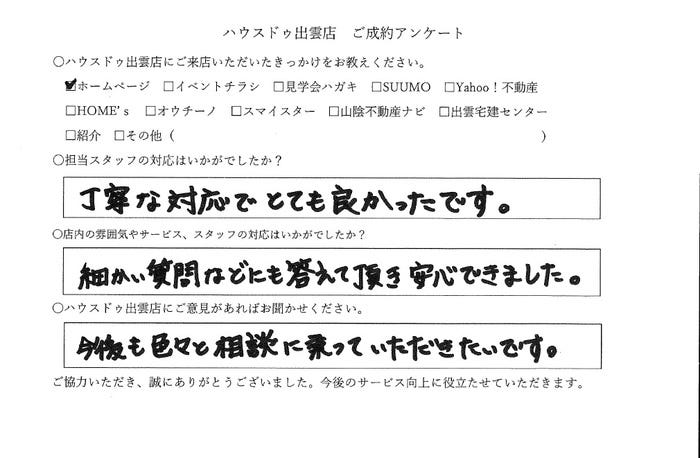 ハウスドゥ出雲店　ご成約アンケート
〇ハウスドゥ出雲店にご来店いただいたきっかけをお教えください。
☑ホームページ　☐イベントチラシ　☐見学会ハガキ　☐SUUMO　☐Yahoo！不動産
☐HOME's　☐オウチーノ　☐スマイスター　☐山陰不動産ナビ　☐出雲宅建センター
☐紹介　☐その他（　　　　　　　　　　）
〇担当スタッフの対応はいかがでしたか？
丁寧な対応でとても良かったです。
〇店内の雰囲気やサービス、スタッフの対応はいかがでしたか？
細かい質問などにも答えて頂き安心できました。
〇ハウスドゥ出雲店にご意見があればお聞かせください。
今後も色々と相談に乗っていただきたいです。
ご協力いただき、誠にありがとうございました。今後のサービス向上に役立たせていただきます。